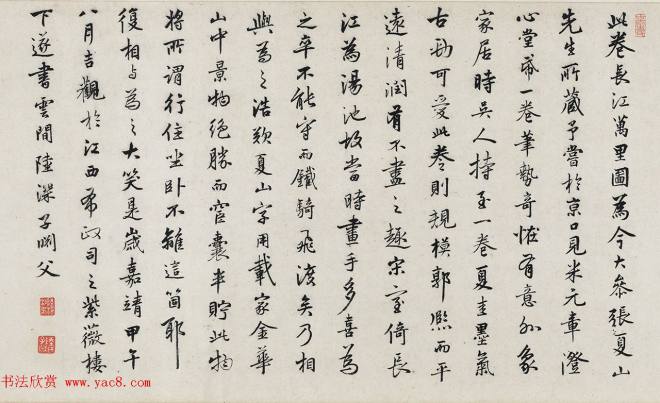 此卷長江萬里圖為今大參張夏山
先生所藏予嘗於京口見米元章澄
心堂昬一卷筆勢奇怪有意外象
家居時吳人持至一卷夏圭墨氣
古勁可受此卷則規模郭熙而平
遠清潤有不盡之趣宋室倚長
江為湯池故當時畫手多喜為
之卒不能守而鐵騎飛渡矣乃相
與為之浩歎夏山字用載家金華
山中景物絕勝而宦囊半貯此物
將所謂行住坐卧不離這箇耶
復相與為之大笑是歲嘉靖甲午
八月吉觀於江西布政司之紫薇樓
下遂書雲間陸深子淵父
书法欣赏
www.yac8.com